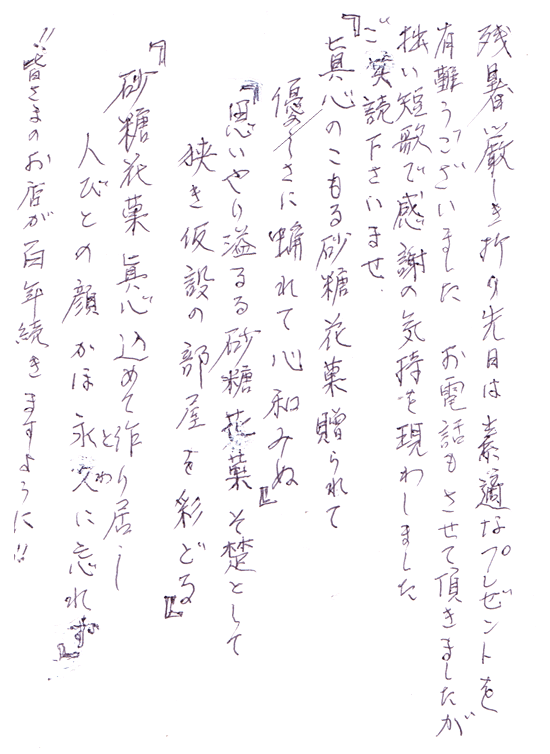 残暑厳しき折り先日は素適なプレゼントを
有難うございました お電話もさせて頂きましたが
拙い短歌で感謝の気持を現わしました
ご笑読下さいませ
『真心のこもる砂糖花菓贈られて
優しさに触れて心和みぬ』
『思いやり溢るる砂糖花菓そ楚として
狭き仮設の部屋を彩どる』
『砂糖花菓真心込めて作り居し
人びとの顔かほ永久に忘れず』
とわ
!!皆さまのお店が百年続きますように!!